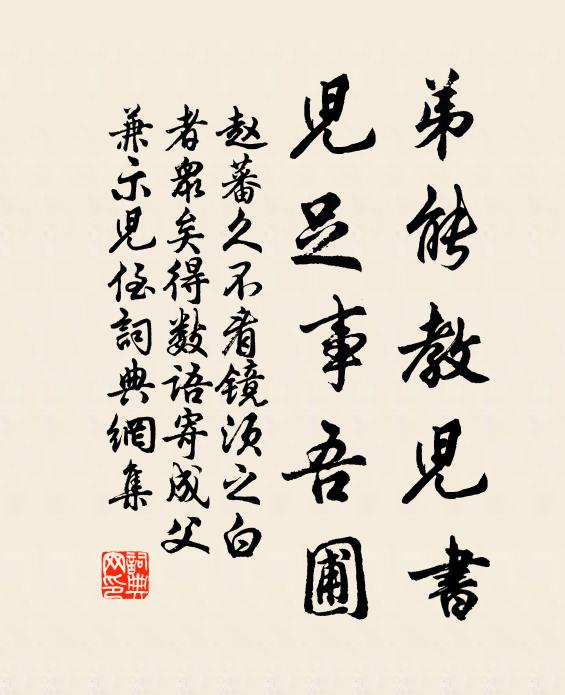 弟能教兒書
兒足事吾圃
赵蕃久不看鏡须之白
者眾矣得数語寄成父
兼示兒侄詞典網集
詞典
网印